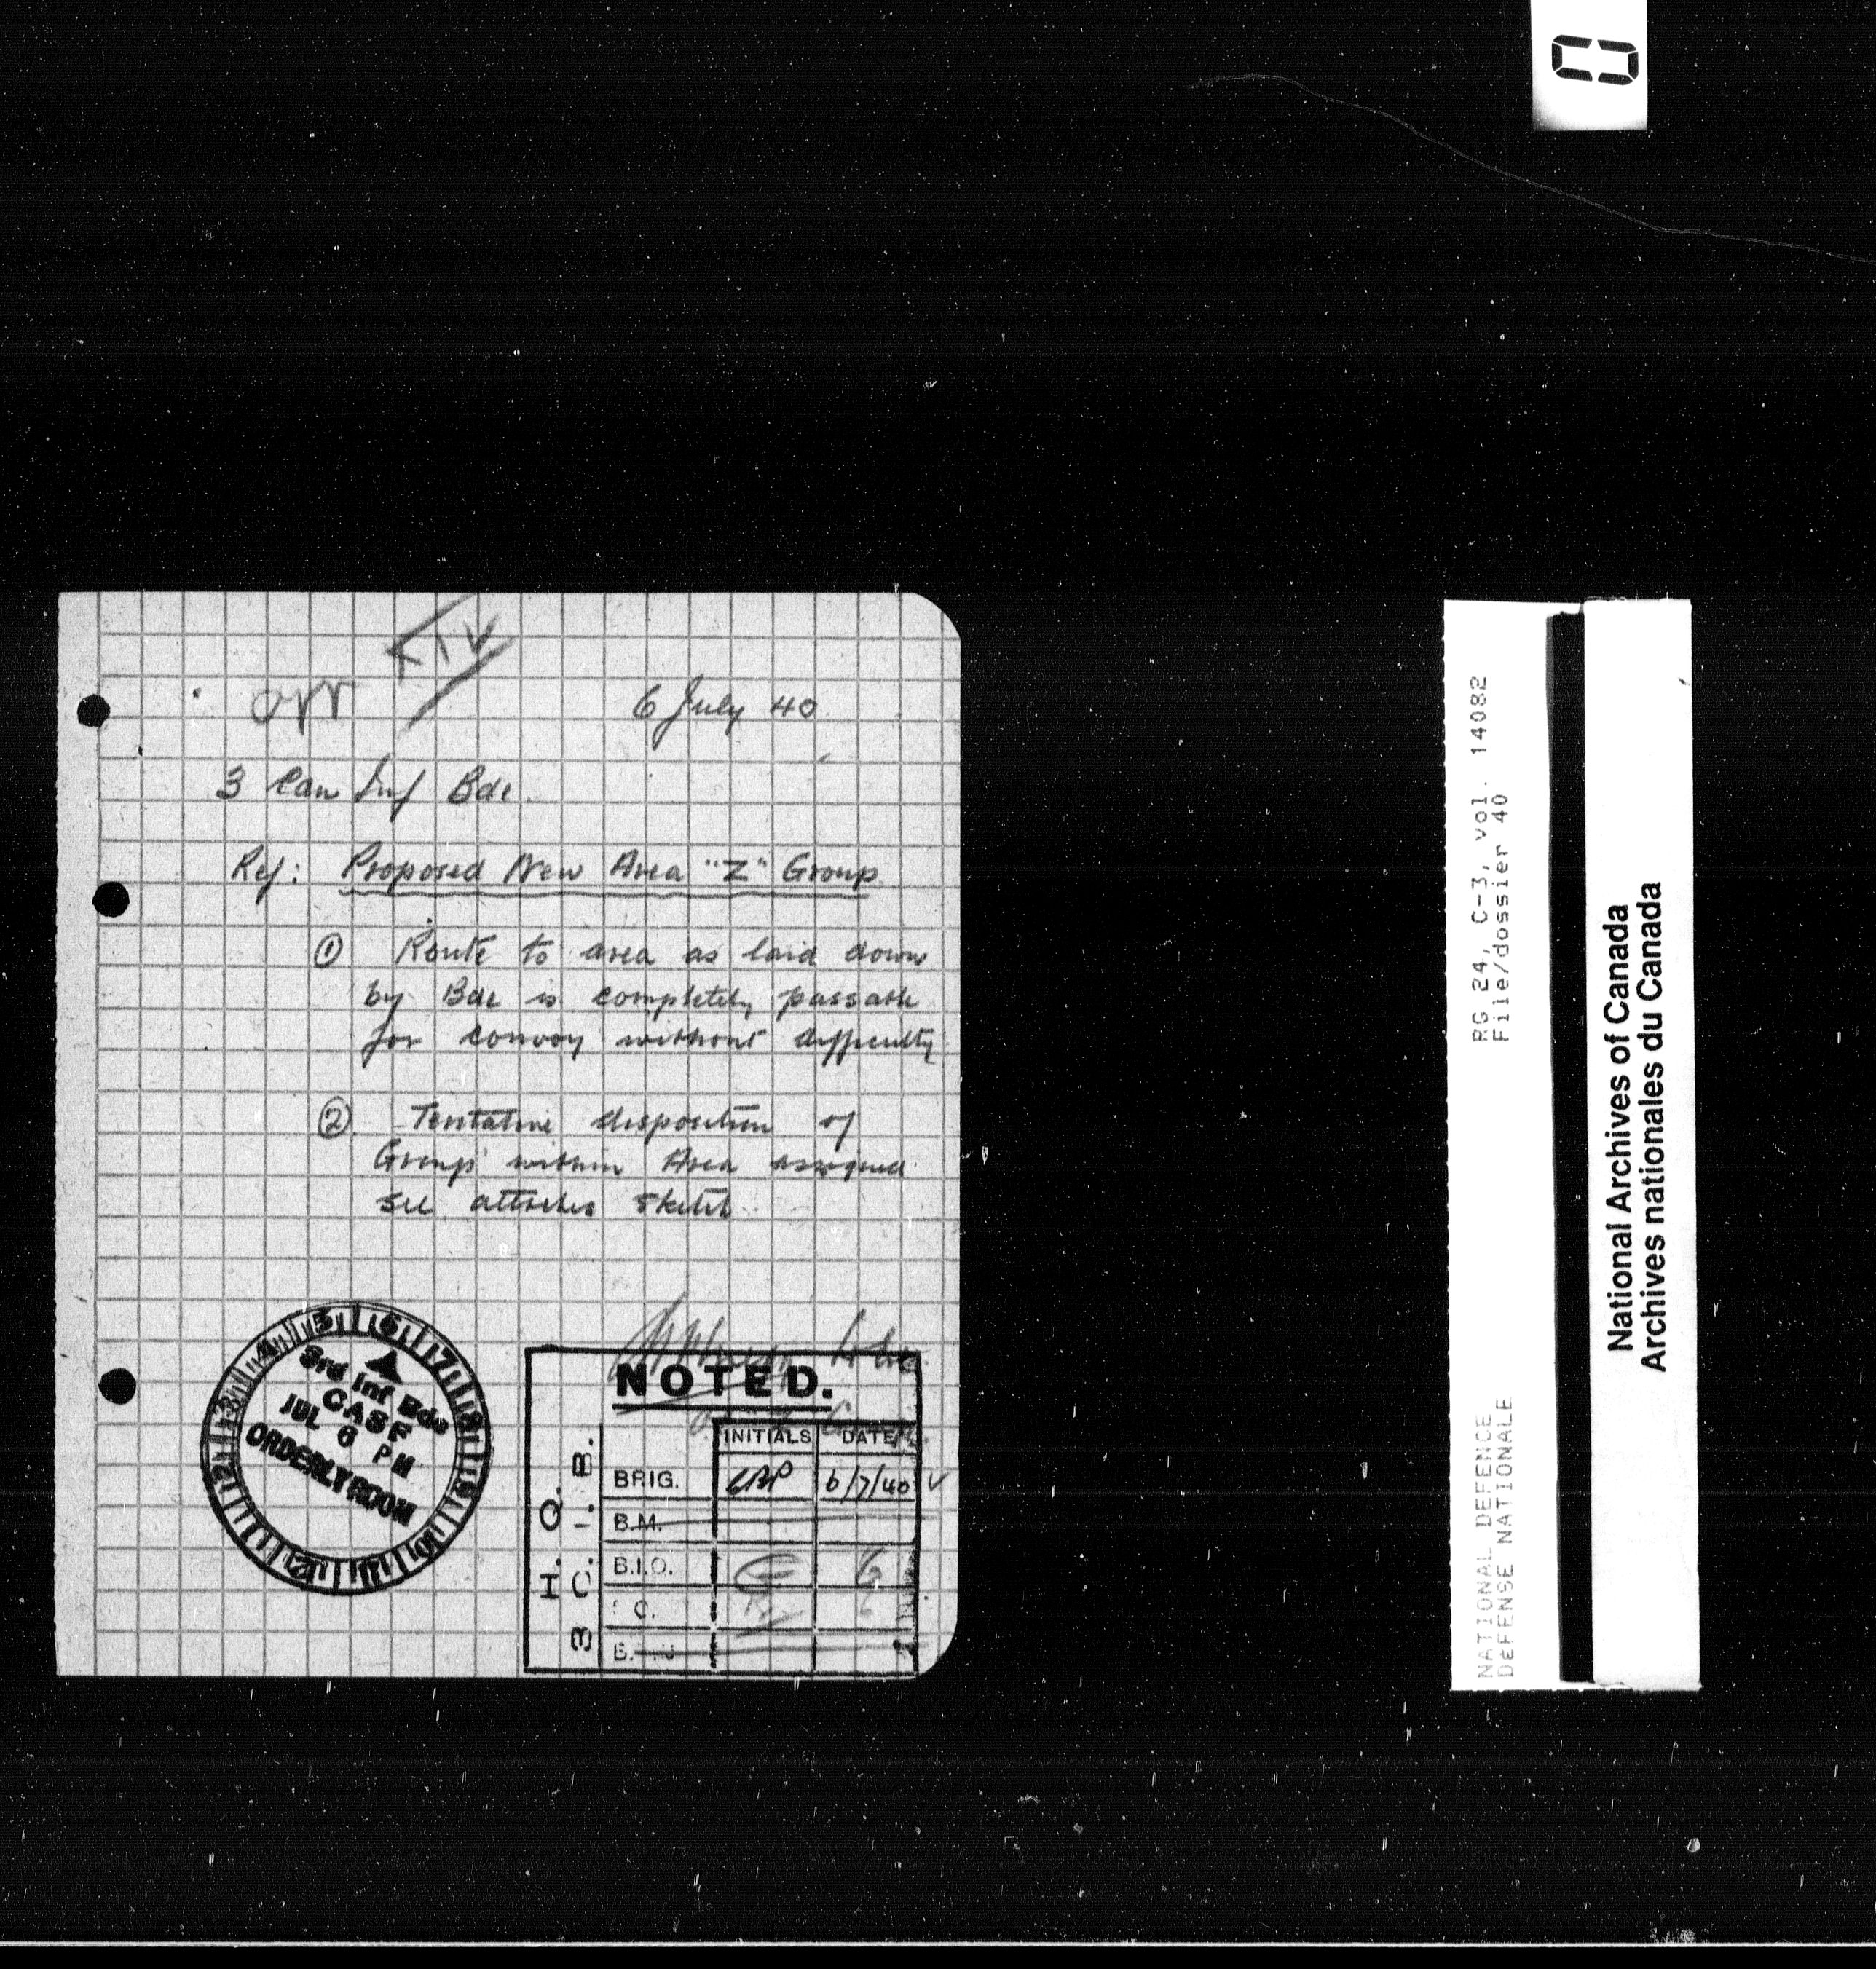 0
6 July 40
3 Can Inf Bde
Ref: Proposed New Area "Z" Group
① Route to area as laid down
by Bde is completely passable
for convoy without difficulty
② Tentative disposition of
Group within Area assigned
see attached sketch
3rd Inf Bde
CASF
JUL 6 PM
ORDERLY ROOM
NOTED.
H. Q.
3 C. I. B.
INITIALS DATE
BRIG. 6/7/40
B.M.
B.I.O.
RG 24, C-3, vol. 14082
File/dossier 40
NATIONAL DEFENCE
DÉFENSE NATIONALE
National Archives of Canada
Archives nationales du Canada